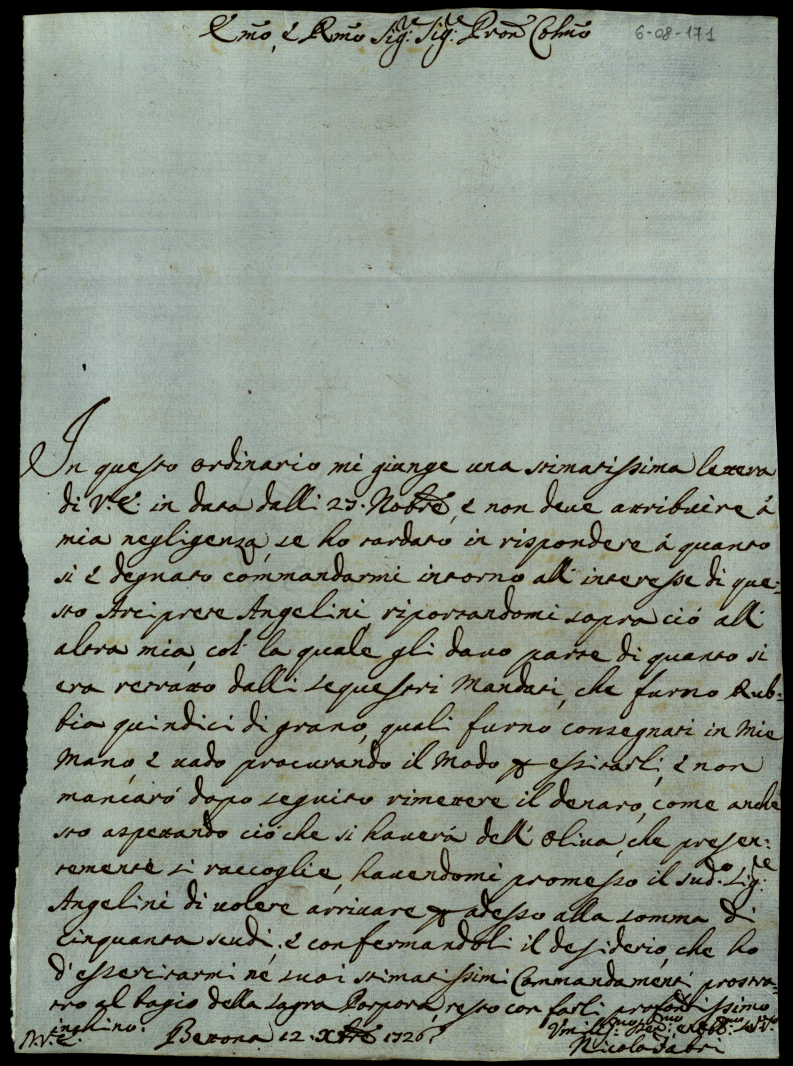 Em̃o, e Rm̃o Sig:re Sig:re Pron̄ Colm̃o
6-08-171
In questo ordinario mi giunge una stimatissima lettera
di V:E: in data dalli 23. Nobre, e non deve attribuire á
mia negligenza, se ho tardato in rispondere á quanto
si é degnato com̃mandarmi intorno all' interesse di que=
sto Arciprete Angelini, riportandomi sopra ció all'
altra mia, col la quale gli davo parte di quanto si
era retratto dalli sequestri Mandati, che furno Rub=
bia quindici di grano, quali furno consegnati in Mie
Mano, e vado procurando il Modo p essitarli, e non
mancaró dopo seguito rimettere il denaro, come anche
sto aspettando ció che si haverá dell' Oliva, che presen:
temente si raccoglie, havendomi promesso il sud:o Sig:re
Angelini di volere arrivare p adesso alla somma di
Cinquanta scudi. e confermandoli il desiderio, che ho
d'essercitarmi né suoi stimatissimi Commandamenti prostra=
tro al bagio della sagra Porpora, resto con farli profondissimo
inchino.
D.V.E. Bettona 12. Xbre 1726
Um:mo Dev:mo et Obb:mo Se:re
Nicola Fabri